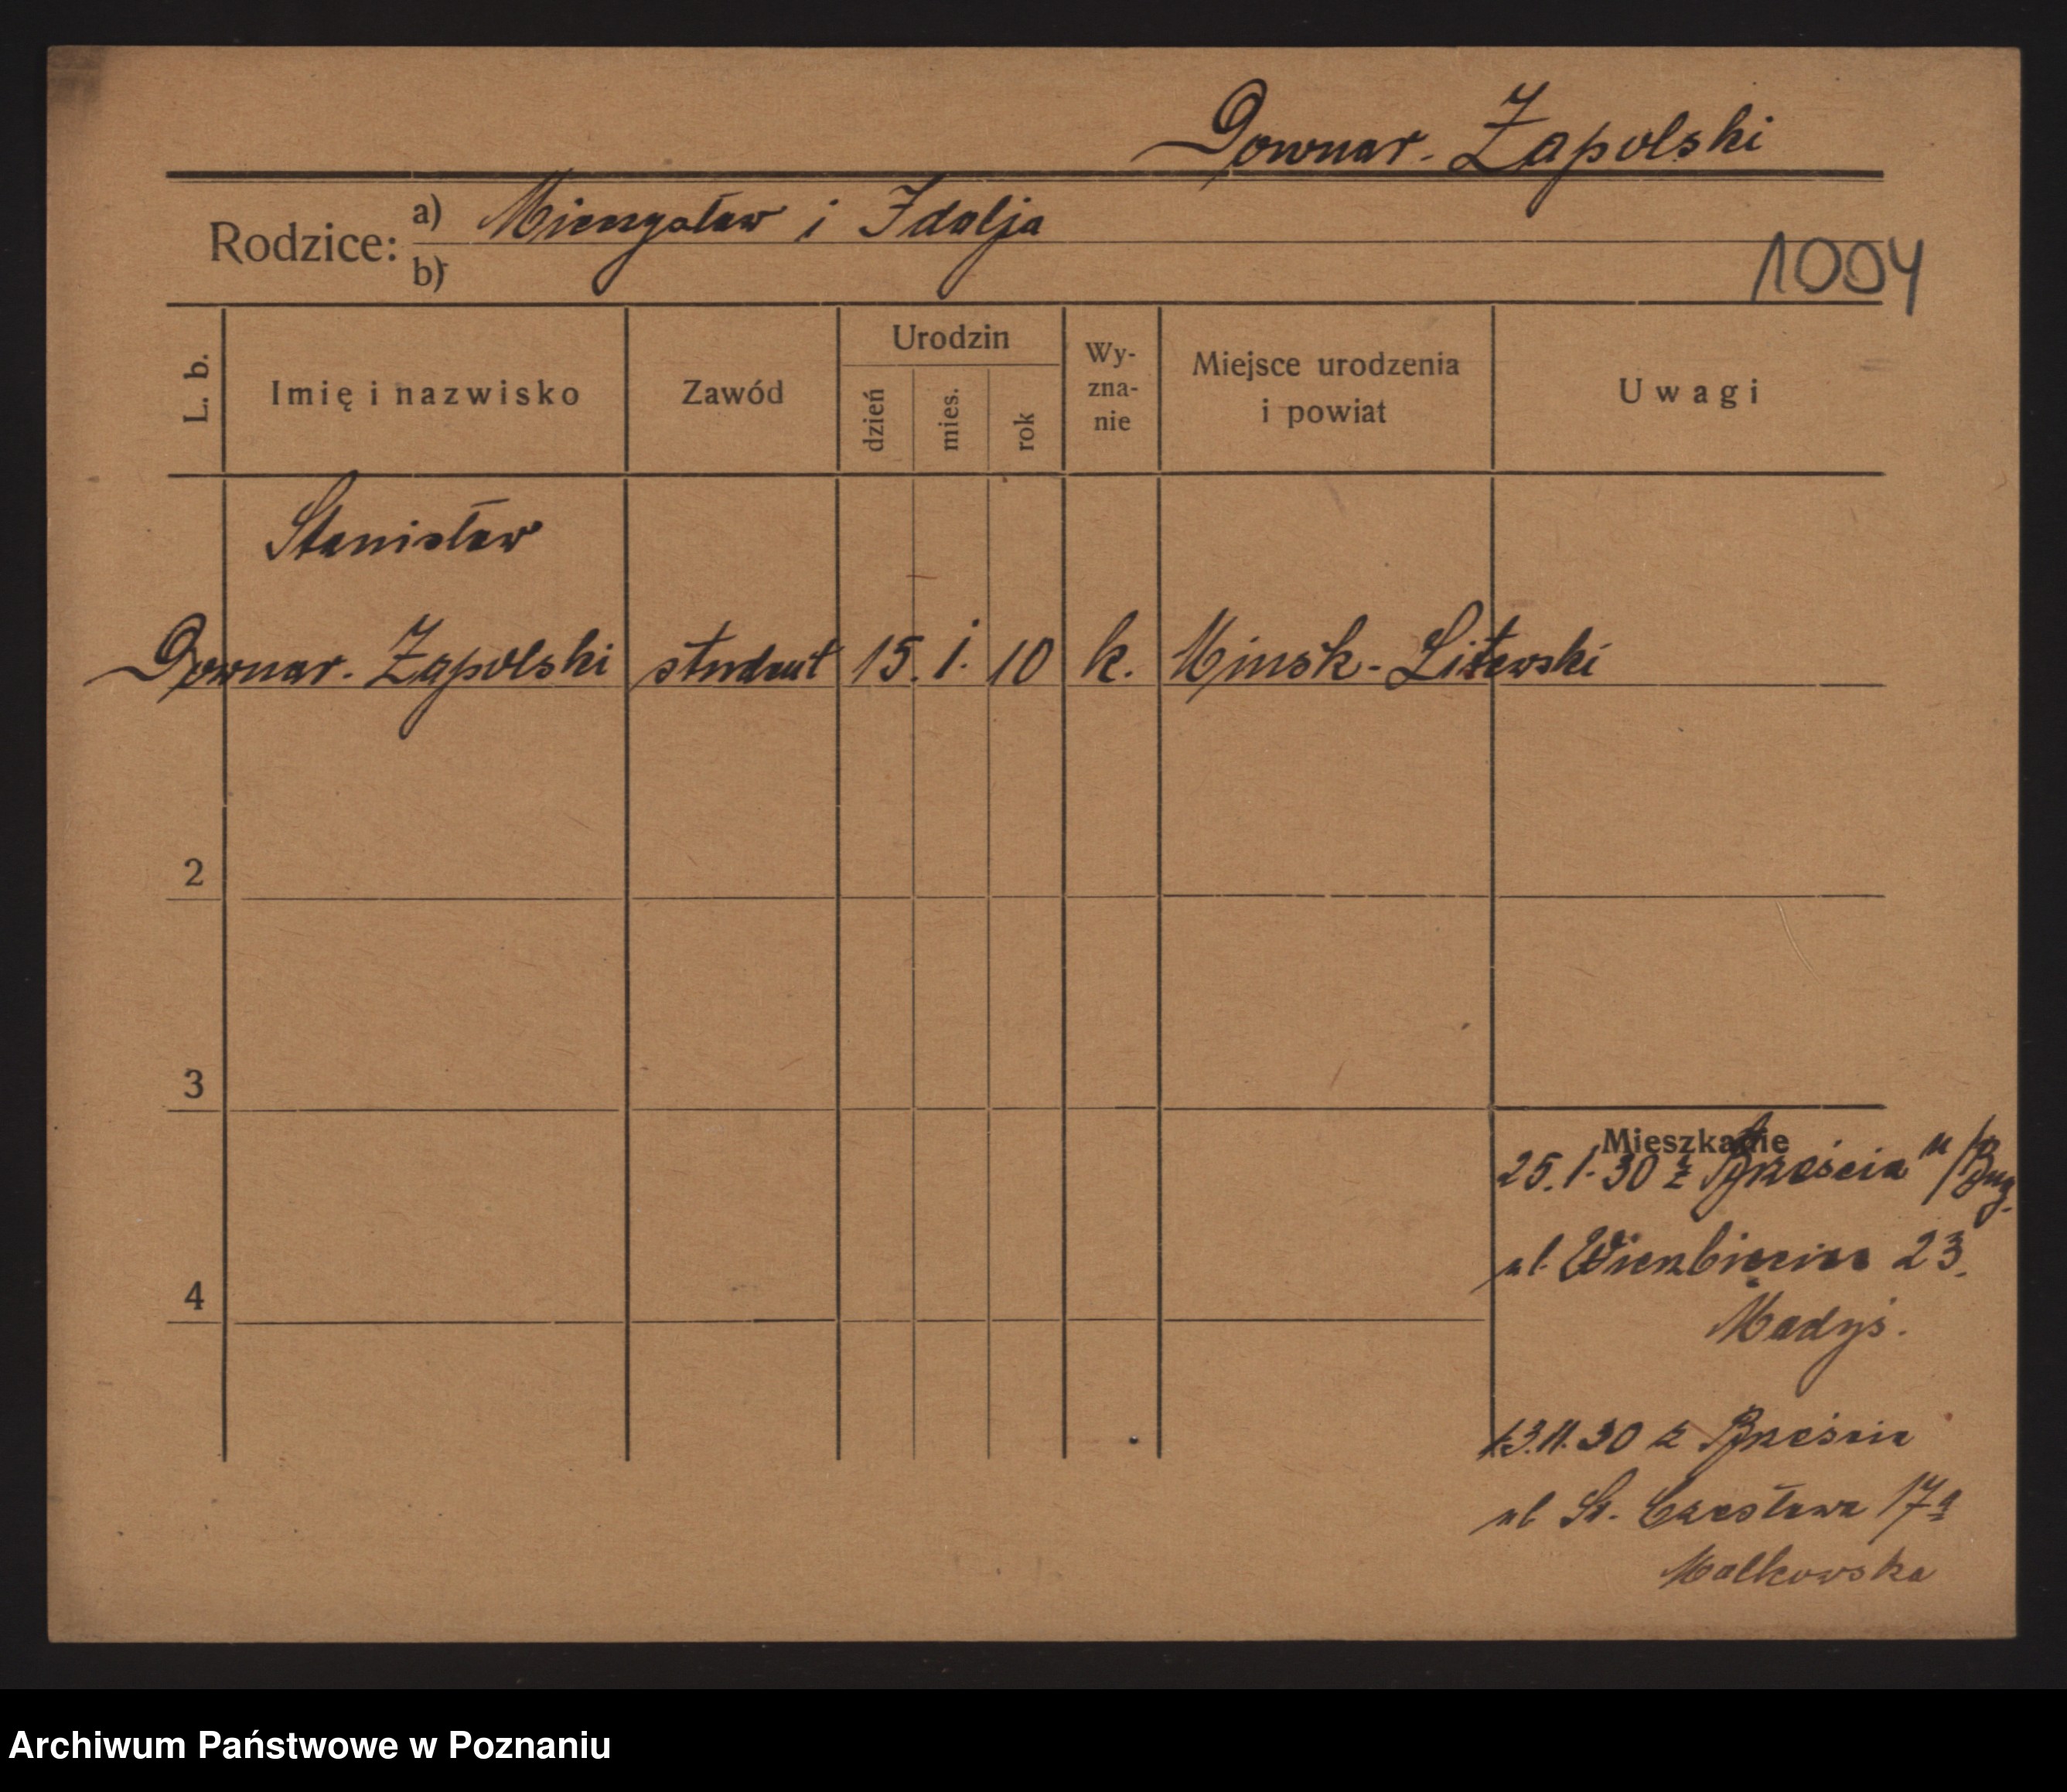 Downar-Zapolski
Rodzice: a) Mieczysław i Idalja
b)
1004
L. b. Imię i nazwisko Zawód Urodzin dzień mies. rok Wy-zna-nie Miejsce urodzenia i powiat Uwagi
Stanisław
Downar-Zapolski student 15. 1. 10 k. Minsk-Litewski
2
3
4
Mieszkanie
25.1.30 z Brześcia n/Bug.
ul. Wierzbięcice 23.
Madyś.
13.11.30 z Brześcia
ul. Św. Czesława 17a
Malkowska
Archiwum Państwowe w Poznaniu